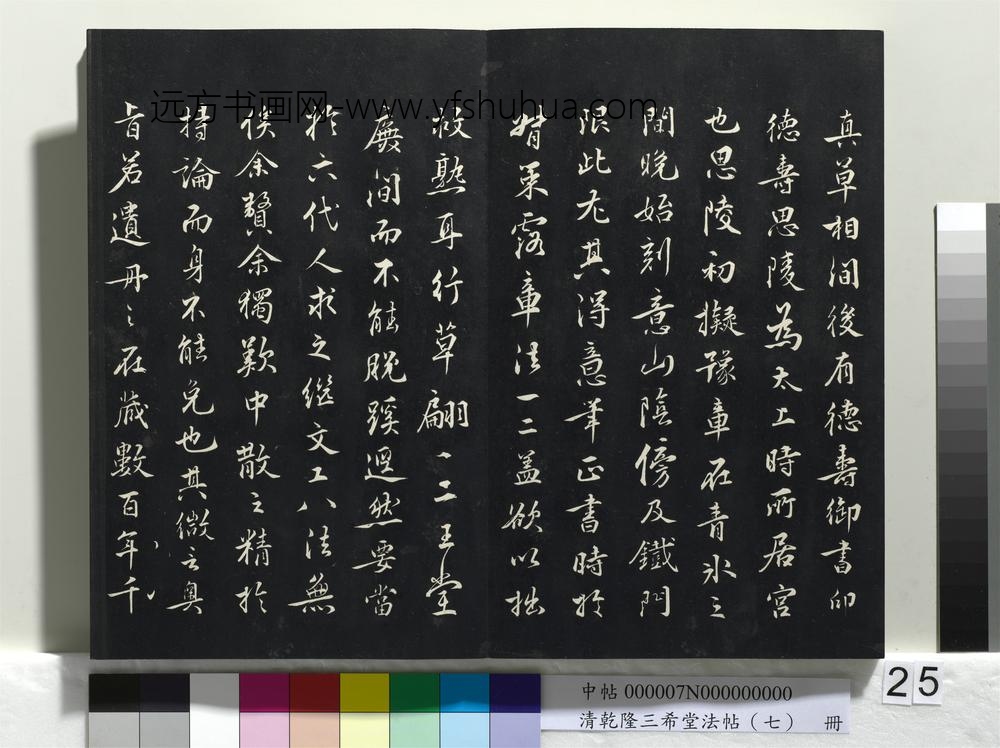 真草相間後有德壽御書印
德壽思陵為太上時所居宮
也思陵初擬豫章在青氷之
間晚始刻意山陰傍及鐵門
限此尤其得意筆正書時於
婿秉露章法一二盖欲以拙
救熟耳行草翩〻二王堂
廡間而不能脫蹊逕然要當
於六代人求之繼文工八法無
俟余贅余獨歎中散之精於
持論而身不能免也其微言奥
旨若遺丹〻在藏數百年千
远方书画网-www.yfshuhua.com
25
中帖 000007N000000000
清乾隆三希堂法帖（七） 冊